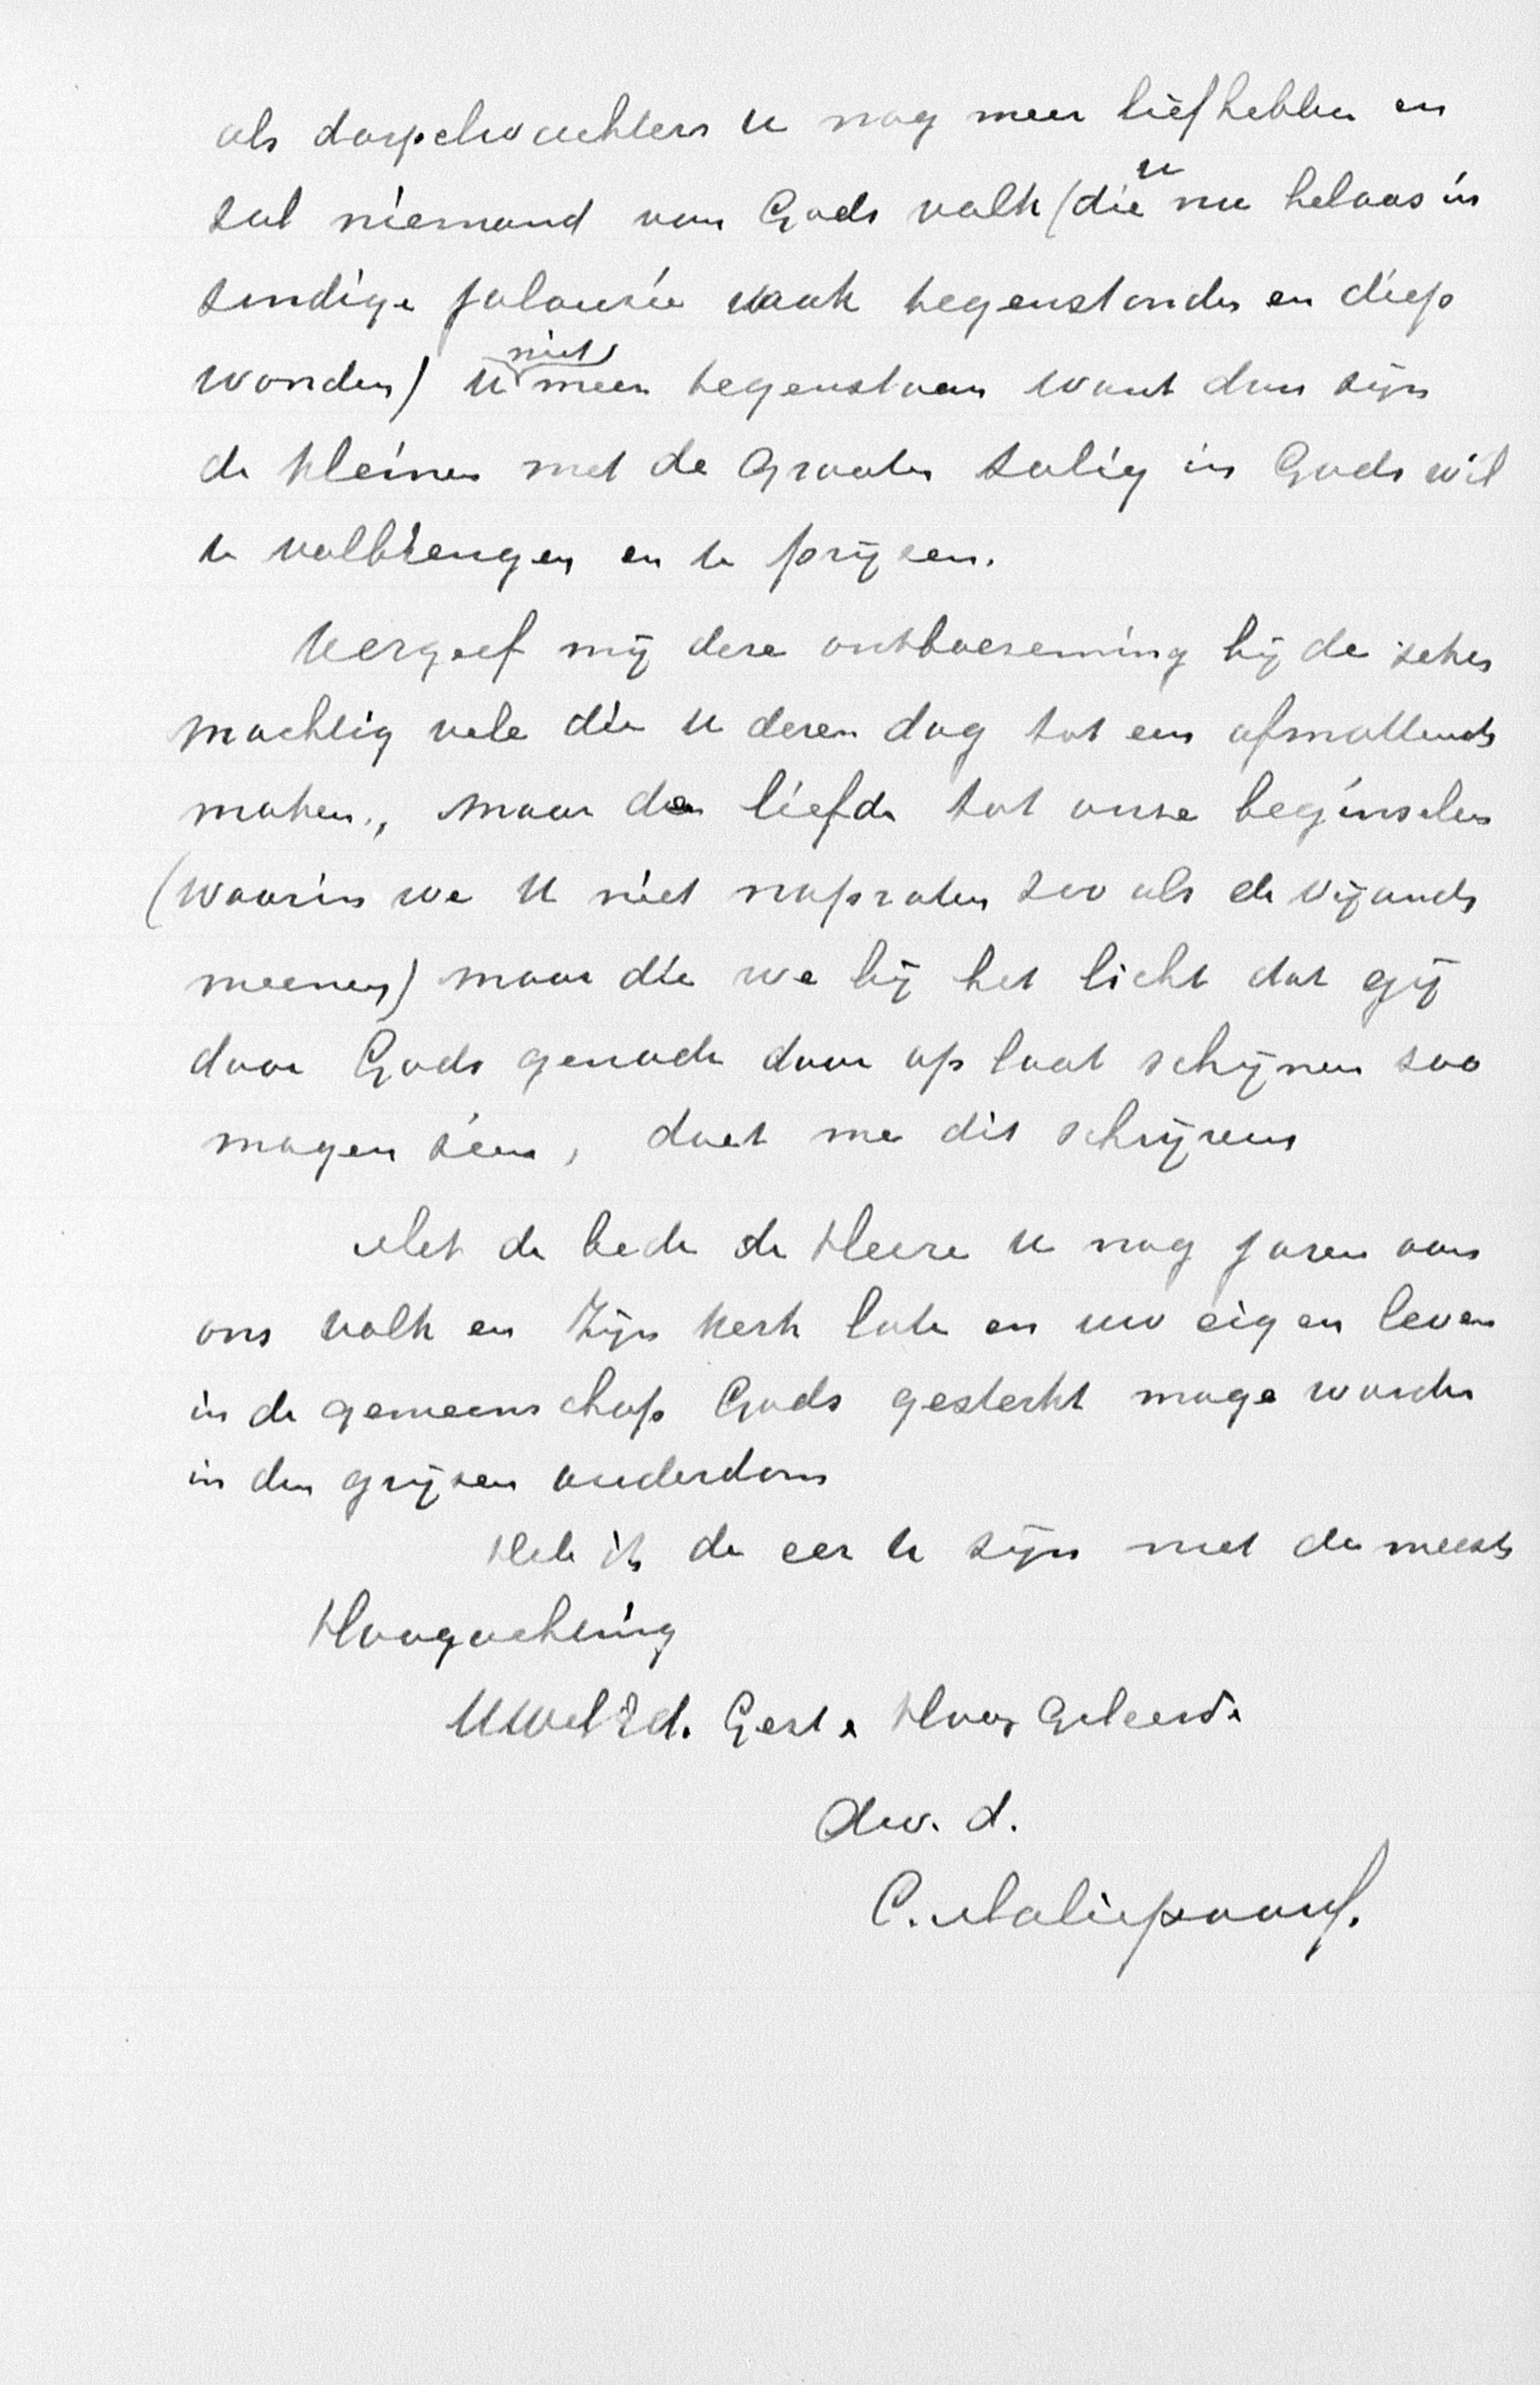 als dorpelwachters U nog meer liefhebben en
zal niemand van Gods volk (die U nu helaas in
zondige jalouzie vaak tegenstonden en diep
wonden) U niet meer tegenstaan want dan zijn
de kleinen met de Grooten zalig in Gods wil
te volbrengen en te prijzen.
Vergeef mij deze ontboezeming bij de zeker
machtig vele die U dezen dag tot een afmattende
maken, maar de liefde tot onze beginselen
(waarin we U niet napraten zoo als de vijands
meenen) maar die we bij het licht dat gij
door Gods genade daar op laat schijnen zoo
mogen zien, doet me dit schrijven
Met de bede de Heere U nog jaren aan
ons volk en Zijn Kerk late en uw eigen leven
in de gemeenschap Gods gesterkt moge worden
in den grijzen ouderdom
Heb ik de eer te zijn met de meeste
Hoogachting
UWelEd. Gest. Hoog Geleerde
dw. d.
C. Maliepaard.